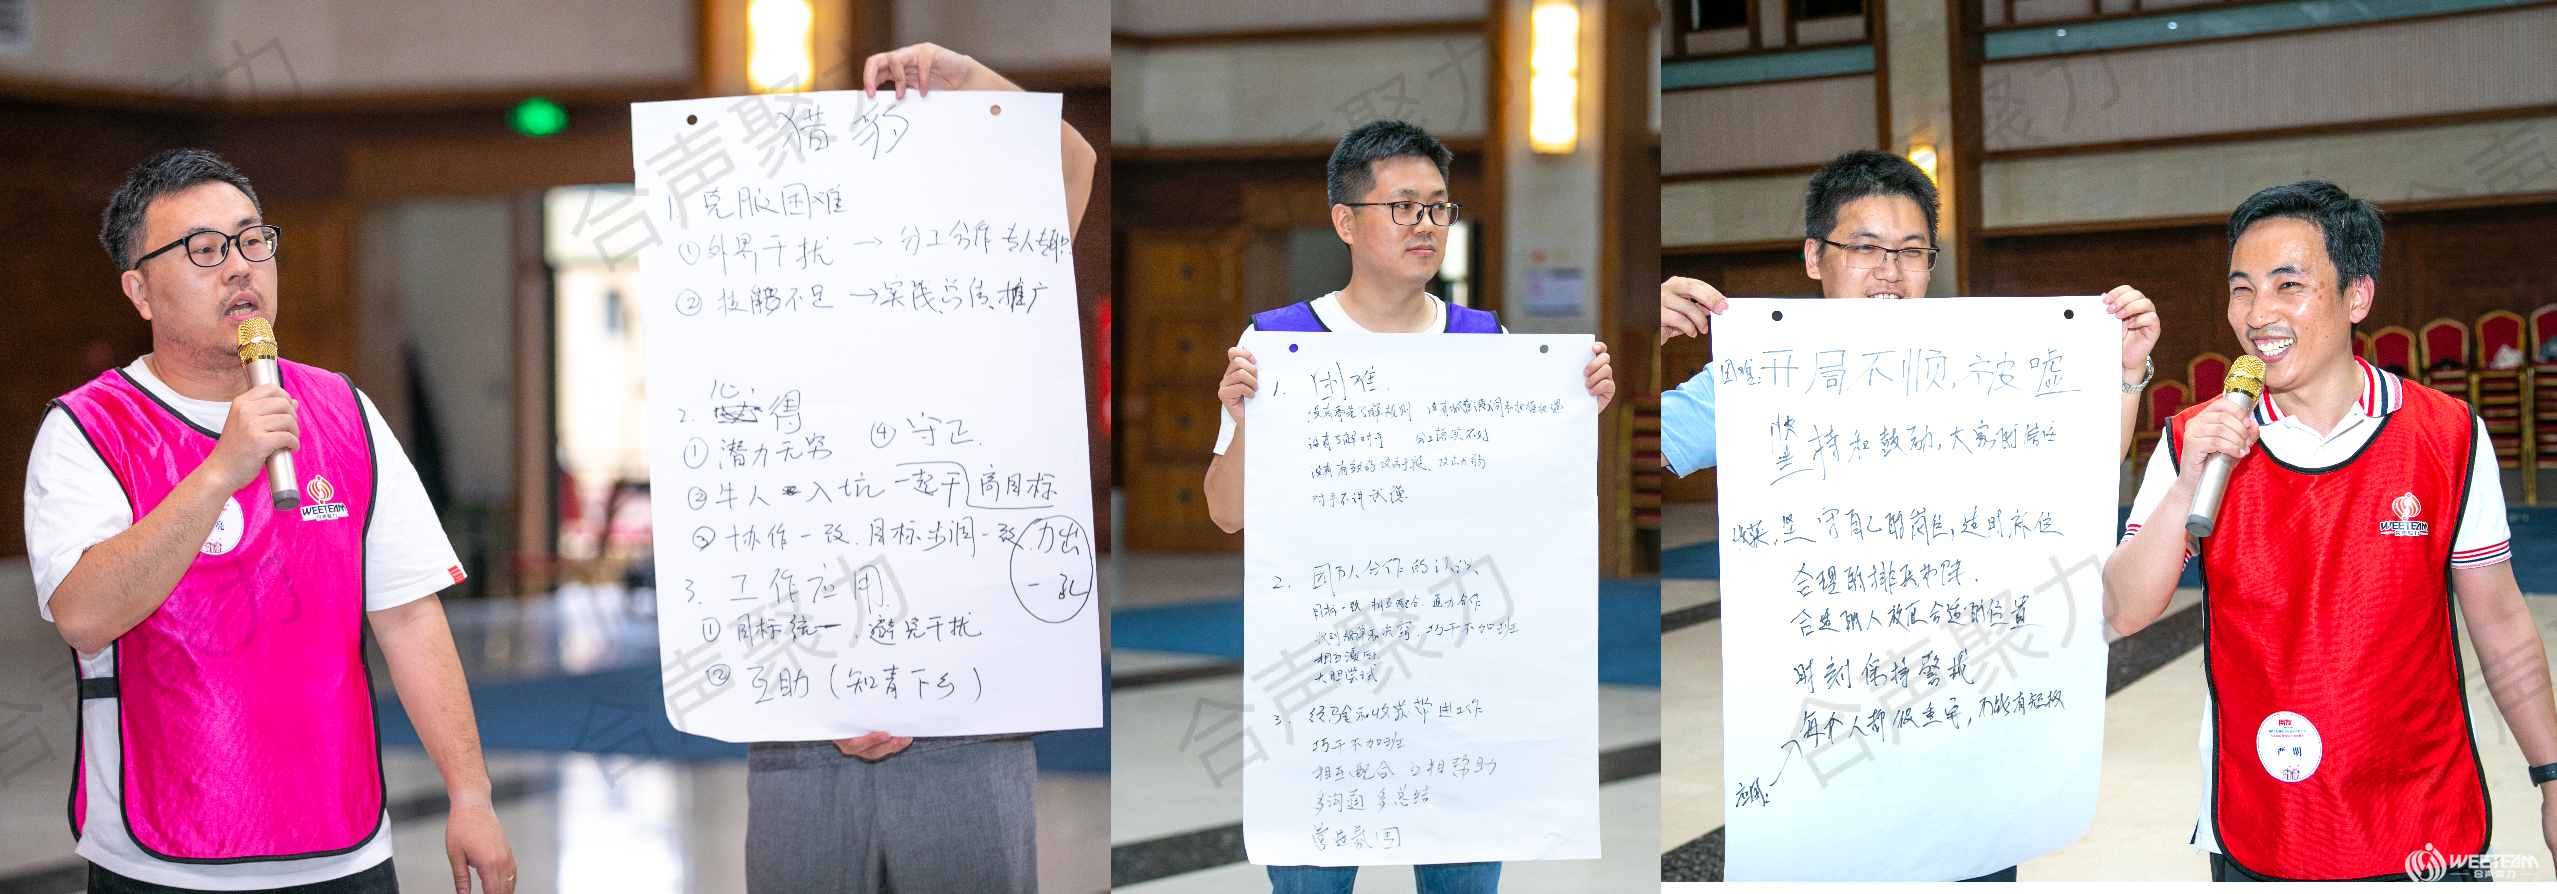 猎豹
1. 克服困难
①外界干扰 → 分工合作 专人专职
②技能不足 →实践、总结、推广
2. 心得
①潜力无穷 ④守正.
②牛人入坑 一起干 高目标
③协作一致.目标步调一致.力出一孔
3. 工作应用
①目标统一, 避免干扰
②互助(知青下乡)
WEETEAM
合声聚力
1. 困难.
没有事先了解规则
没有了解对手 分工落实不到
没有有效的攻击手段, 攻击力弱
对手不讲武德.
2. 团队合作的认识
目标一致 相互配合, 通力合作
巧干不加班
相互激励.
大胆尝试
3. 经验和收获带进工作
巧干不加班
相互配合 互相帮助
多沟通 多总结
营造氛围
困难: 开局不顺, 被嘘
坚持和鼓励, 大家的信任
收获: 坚守自己的岗位, 适时补位
合理的排兵布阵.
合适的人放在合适的位置
时刻保持警戒
应用: 每个人都很重要, 不能有短板
WEETEAM
合声聚力
严明
WEETEAM
合声聚力
合声聚力